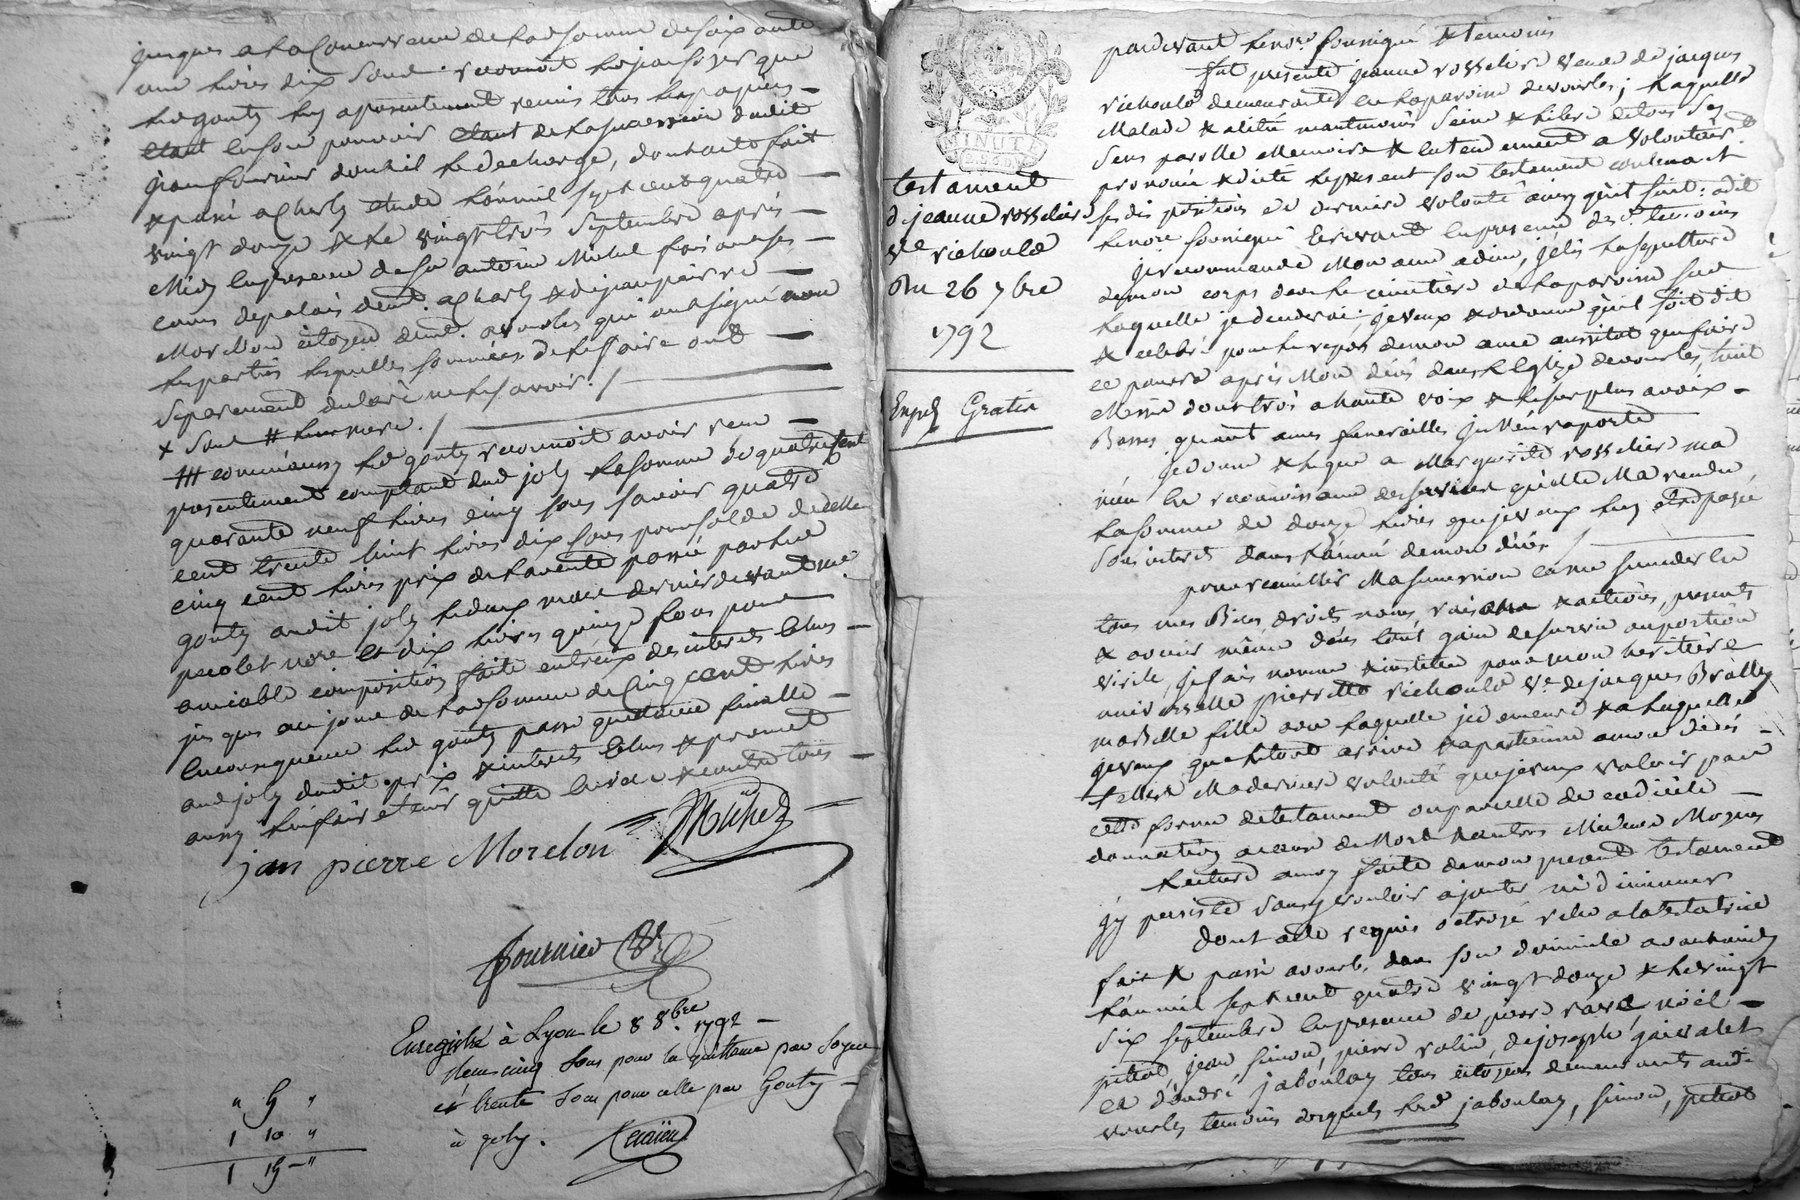 jusques a la Concurrence de la somme de soixante
une livres dix sous reconnoit le jaussoyer que
led gonty luy a presentement remis tous les papiers
etant en son pouvoir etant de la succession dudit
jean fournier dont il le decharge, dont acte fait
& passé a Charly etude l'an mil sept cent quatre
vingt douze & le vingt trois septembre après
Midy en presence de sr antoine Michel
demt a Charly & de jean pierre
Morellon citoyen demt a vourles qui ont signé avec
les parties lesquelles sommées de le faire ont
separement declaré ne le savoir
comme aussy led gonty reconnoit avoir reçu
presentement comptant dud joly la somme de quatre cent
quarante neuf livres cinq sous savoir quatre
cent trente huit livres dix sous pour solde de celle
cinq cent livres prix de la vente passé par led
gonty audit joly le deux mars dernier devant me
pacolet nore et dix livres quinze sous pour
amiable composition faite entreux des interets echus
jusques au jour de la somme de Cinq cent livres
en consequence led gonty passe quittance finalle
aud joly dudit prix & interets echus & promet
aussy l'en faire et tenir quitte envers & contre tous
jan pierre Morelon Michel
fournier
Enregistré à Lyon le 8 8bre 1792
reçu cinq sous pour la quittance par
et trente sous pour celle par Gonty
à Joly.
" 5 "
1 10 "
1 15 "
MINUTE
testament
de jeanne rosselier
ve richoud
Du 26 7bre
1792
Expé Gratis
pardevant le nore soussigné & temoins
fut presente jeanne rosselier veuve de jacques
richoud demeurante en la paroisse de vourles, laquelle
Malade & alitée neantmoins saine & libre de tous ses
sens parolle Memoire & entendement a volontairet
prononcé & dicté le present son testament contenant
ses dispositions de derniere volonté ainsy qu'il suit: a dit
le nore soussigné Ecrivant en presence des d. temoins
je recommande Mon ame a dieu, j'élis la sepulture
de mon corps dans le cimetiere de la paroisse sur
laquelle je decederai; je veux & ordonne qu'il soit dit
& celebré pour le repos de mon ame aussitot que faire
ce pourra après Mon décès dans l'Eglize de vourles huit
Messe dont trois a haute voix & le surplus a voix
Basses quant a mes funerailles je M'en raporte
je donne & legue a Marguerite rosselier ma
niéce en reconnoissance des services qu'elle Ma rendu
la somme de douze livres que je veux luy etre payée
sans interet dans l'année de mon décès
pour recueillir Ma succession et me succeder en
tous mes Biens droits noms raisons & actions, presents
& avenir même dans tout gain de survie ou portion
virile, je fais nomme & institue pour mon heritiere
universelle pierrette richoud ve de jacques
ma Belle fille avec laquelle je demeure & a laquelle
je veux que le tout arrive & apartienne a mon décès
telle est Ma derniere volonté que je veux valoir par
cette forme de testament ou par celle de codicile
donnation a cause de Mort & autres Meilleurs Moyens
lecture a moy faite de mon present testament
j'y persiste sans y vouloir ajouter ni diminuer
dont acte requis octroyé a la testatrice
fait & passé a vourles dans son domicile avant midy
l'an mil sept cent quatre vingt douze & le vingt
six septembre en presence de pierre rave, noël
pitiot, jean simon, pierre rolin, de joseph
et d'andré jaboulay tous citoyens demeurants aud
vourles temoins desquels led jaboulay, simon, pitiot